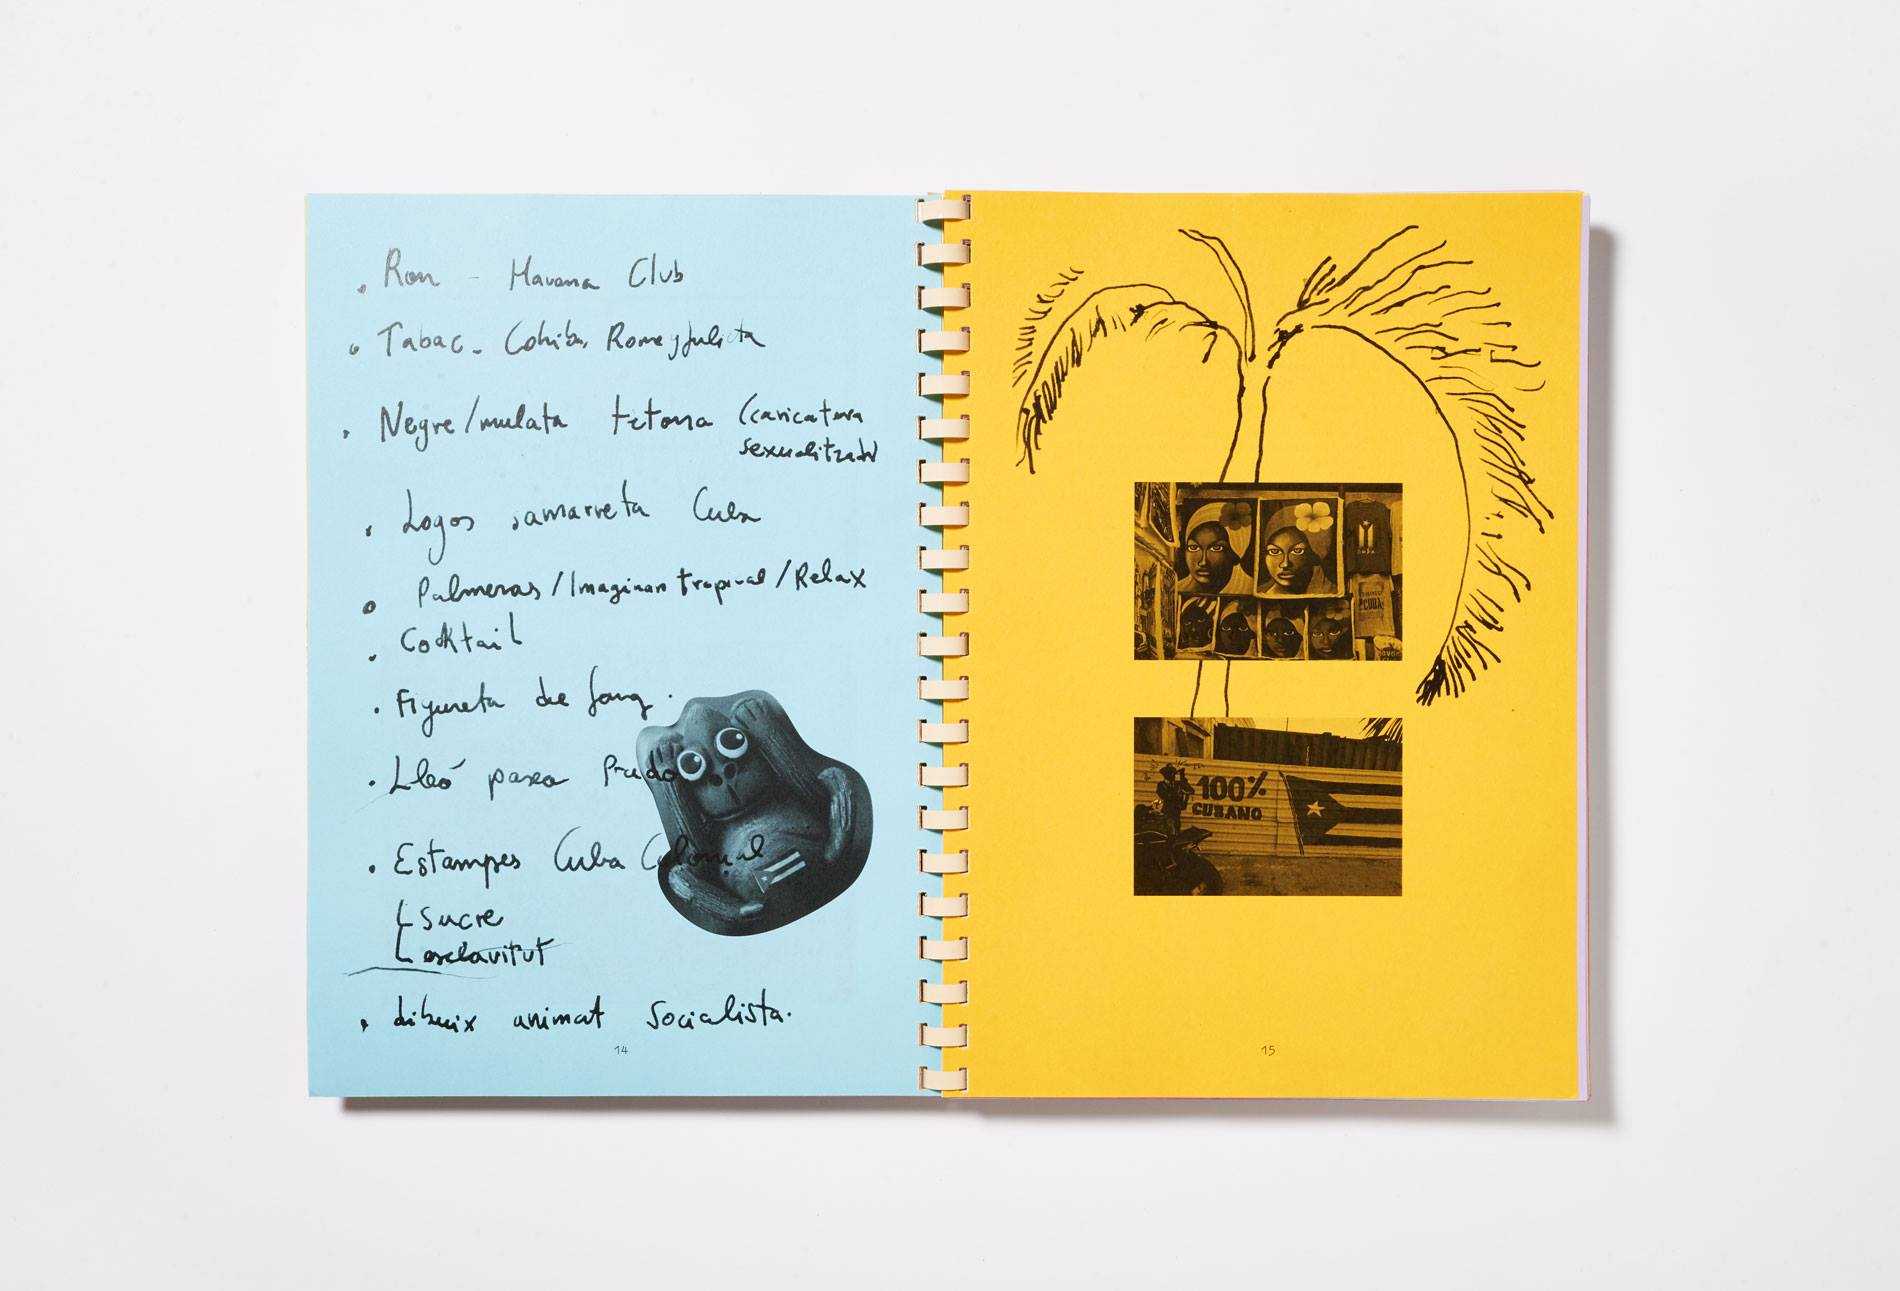 . Ron - Havana Club
. Tabac - Cohiba, Romeo y Julieta
. Negre/mulata tetona (caricatura
sexualitzada)
. Logos samarreta Cuba
. Palmeras/Imaginari tropical/Relax
. Cocktail
. Figureta de fang.
. Lleó paseo Prado
. Estampes Cuba Colonial
L sucre
L esclavitut
. dibuix animat socialista.
14
CUBA
100%
CUBANO
15